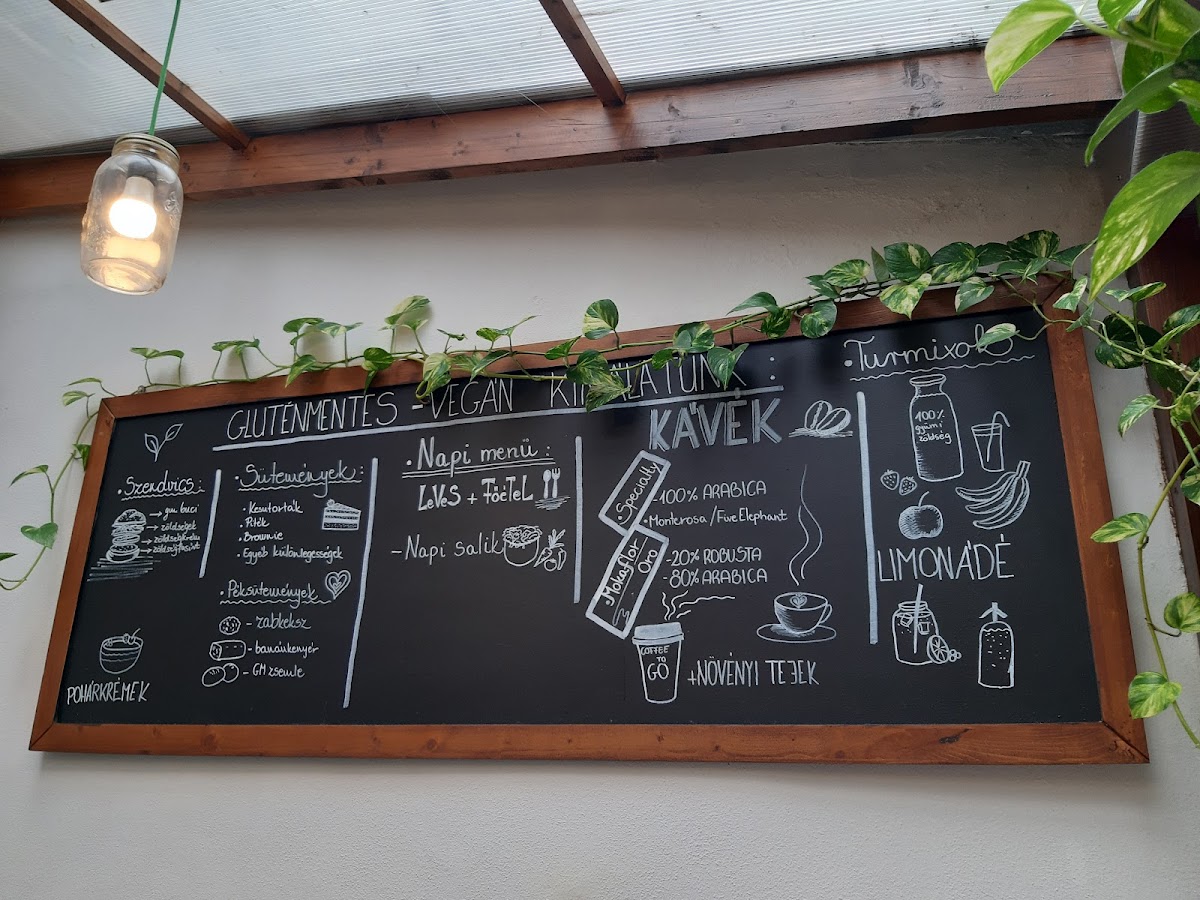 GLUTÉNMENTES - VEGÁN KÍNÁLATUNK :
• Szendvics :
→ gm. buci
→ zöldségek
→ zöldségkrém
POHÁRKRÉMEK
• Sütemények :
• Kemtorták
• Piték
• Brownie
• Egyéb különlegességek
• Péksütemények
- zabkeksz
- banánkenyér
- GM zsemle
• Napi menü :
LeVeS + FőéTeL
- Napi salik
KÁVÉK
• Specialty
- 100% ARABICA
• Monterosa / Five Elephant
• Mokaflor
Oro
- 20% ROBUSTA
- 80% ARABICA
COFFEE
TO
GO
+ NÖVÉNYI TEJEK
• Turmixok
100%
gyümi
zöldség
LIMONÁDÉ